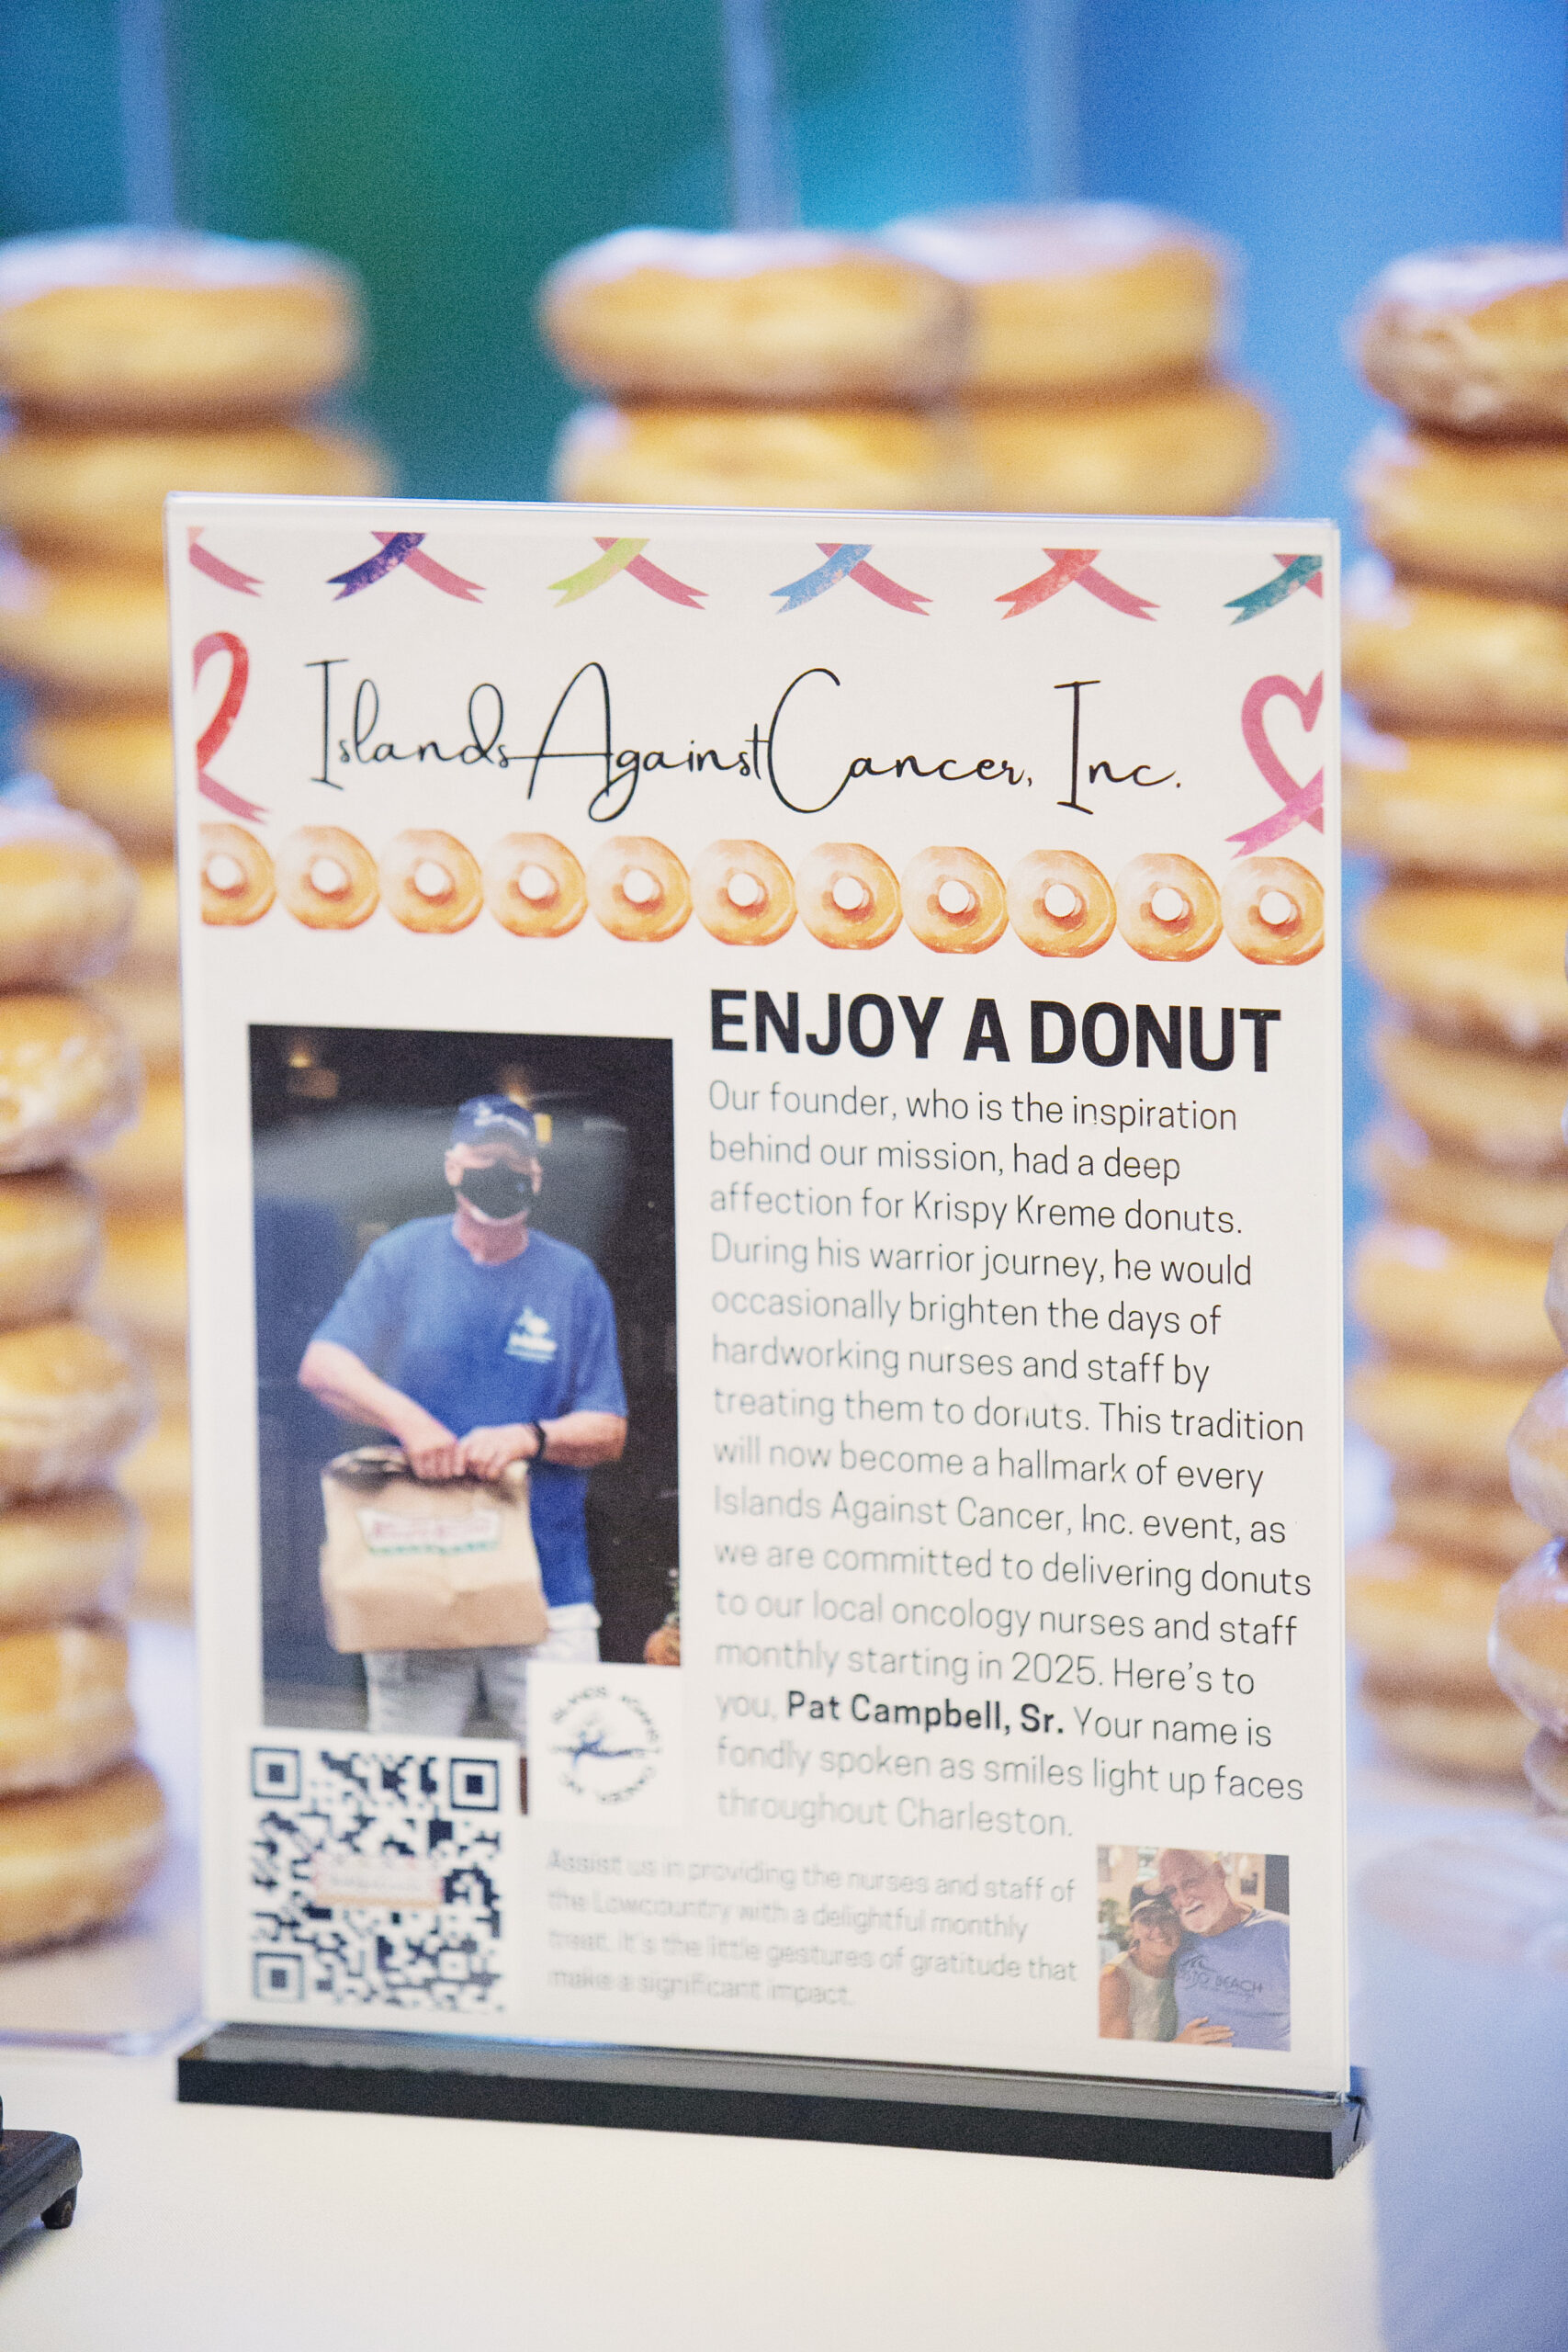 Islands Against Cancer, Inc.
ENJOY A DONUT
Our founder, who is the inspiration
behind our mission, had a deep
affection for Krispy Kreme donuts.
During his warrior journey, he would
occasionally brighten the days of
hardworking nurses and staff by
treating them to donuts. This tradition
will now become a hallmark of every
Islands Against Cancer, Inc. event, as
we are committed to delivering donuts
to our local oncology nurses and staff
monthly starting in 2025. Here's to
you, Pat Campbell, Sr. Your name is
fondly spoken as smiles light up faces
throughout Charleston.
Assist us in providing the nurses and staff of
the Lowcountry with a delightful monthly
treat. It's the little gestures of gratitude that
make a significant impact.
ISLANDS AGAINST CANCER INC
BEACH